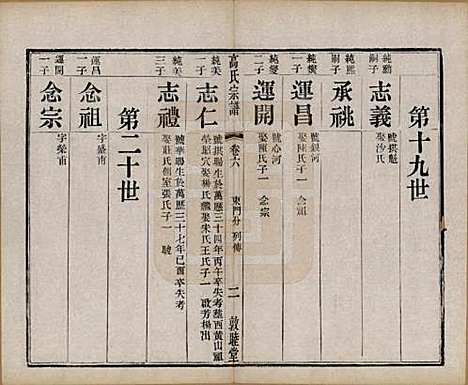 第十九世
純勳嗣子
志義
號拱魁
娶沙氏
純熙嗣子
承祧
純燮一子
運昌
號銀河
娶陳氏子一 念祖
純燮二子
運開
號心河
娶陳氏子一 念宗
高氏宗譜
卷六 東門分 列傳
二 敦睦堂
純美一子
志仁
號拱陽生於萬歷三十四年丙午卒失考葬西黃山吳
榮昭穴娶楊氏繼娶宋氏王氏子一 啟芳楊出
純美三子
志禮
號華陽生於萬歷三十七年己酉卒失考
娶莊氏側室張氏子一 駿
第二十世
運昌一子
念祖
字盛甫
運開一子
念宗
字榮甫